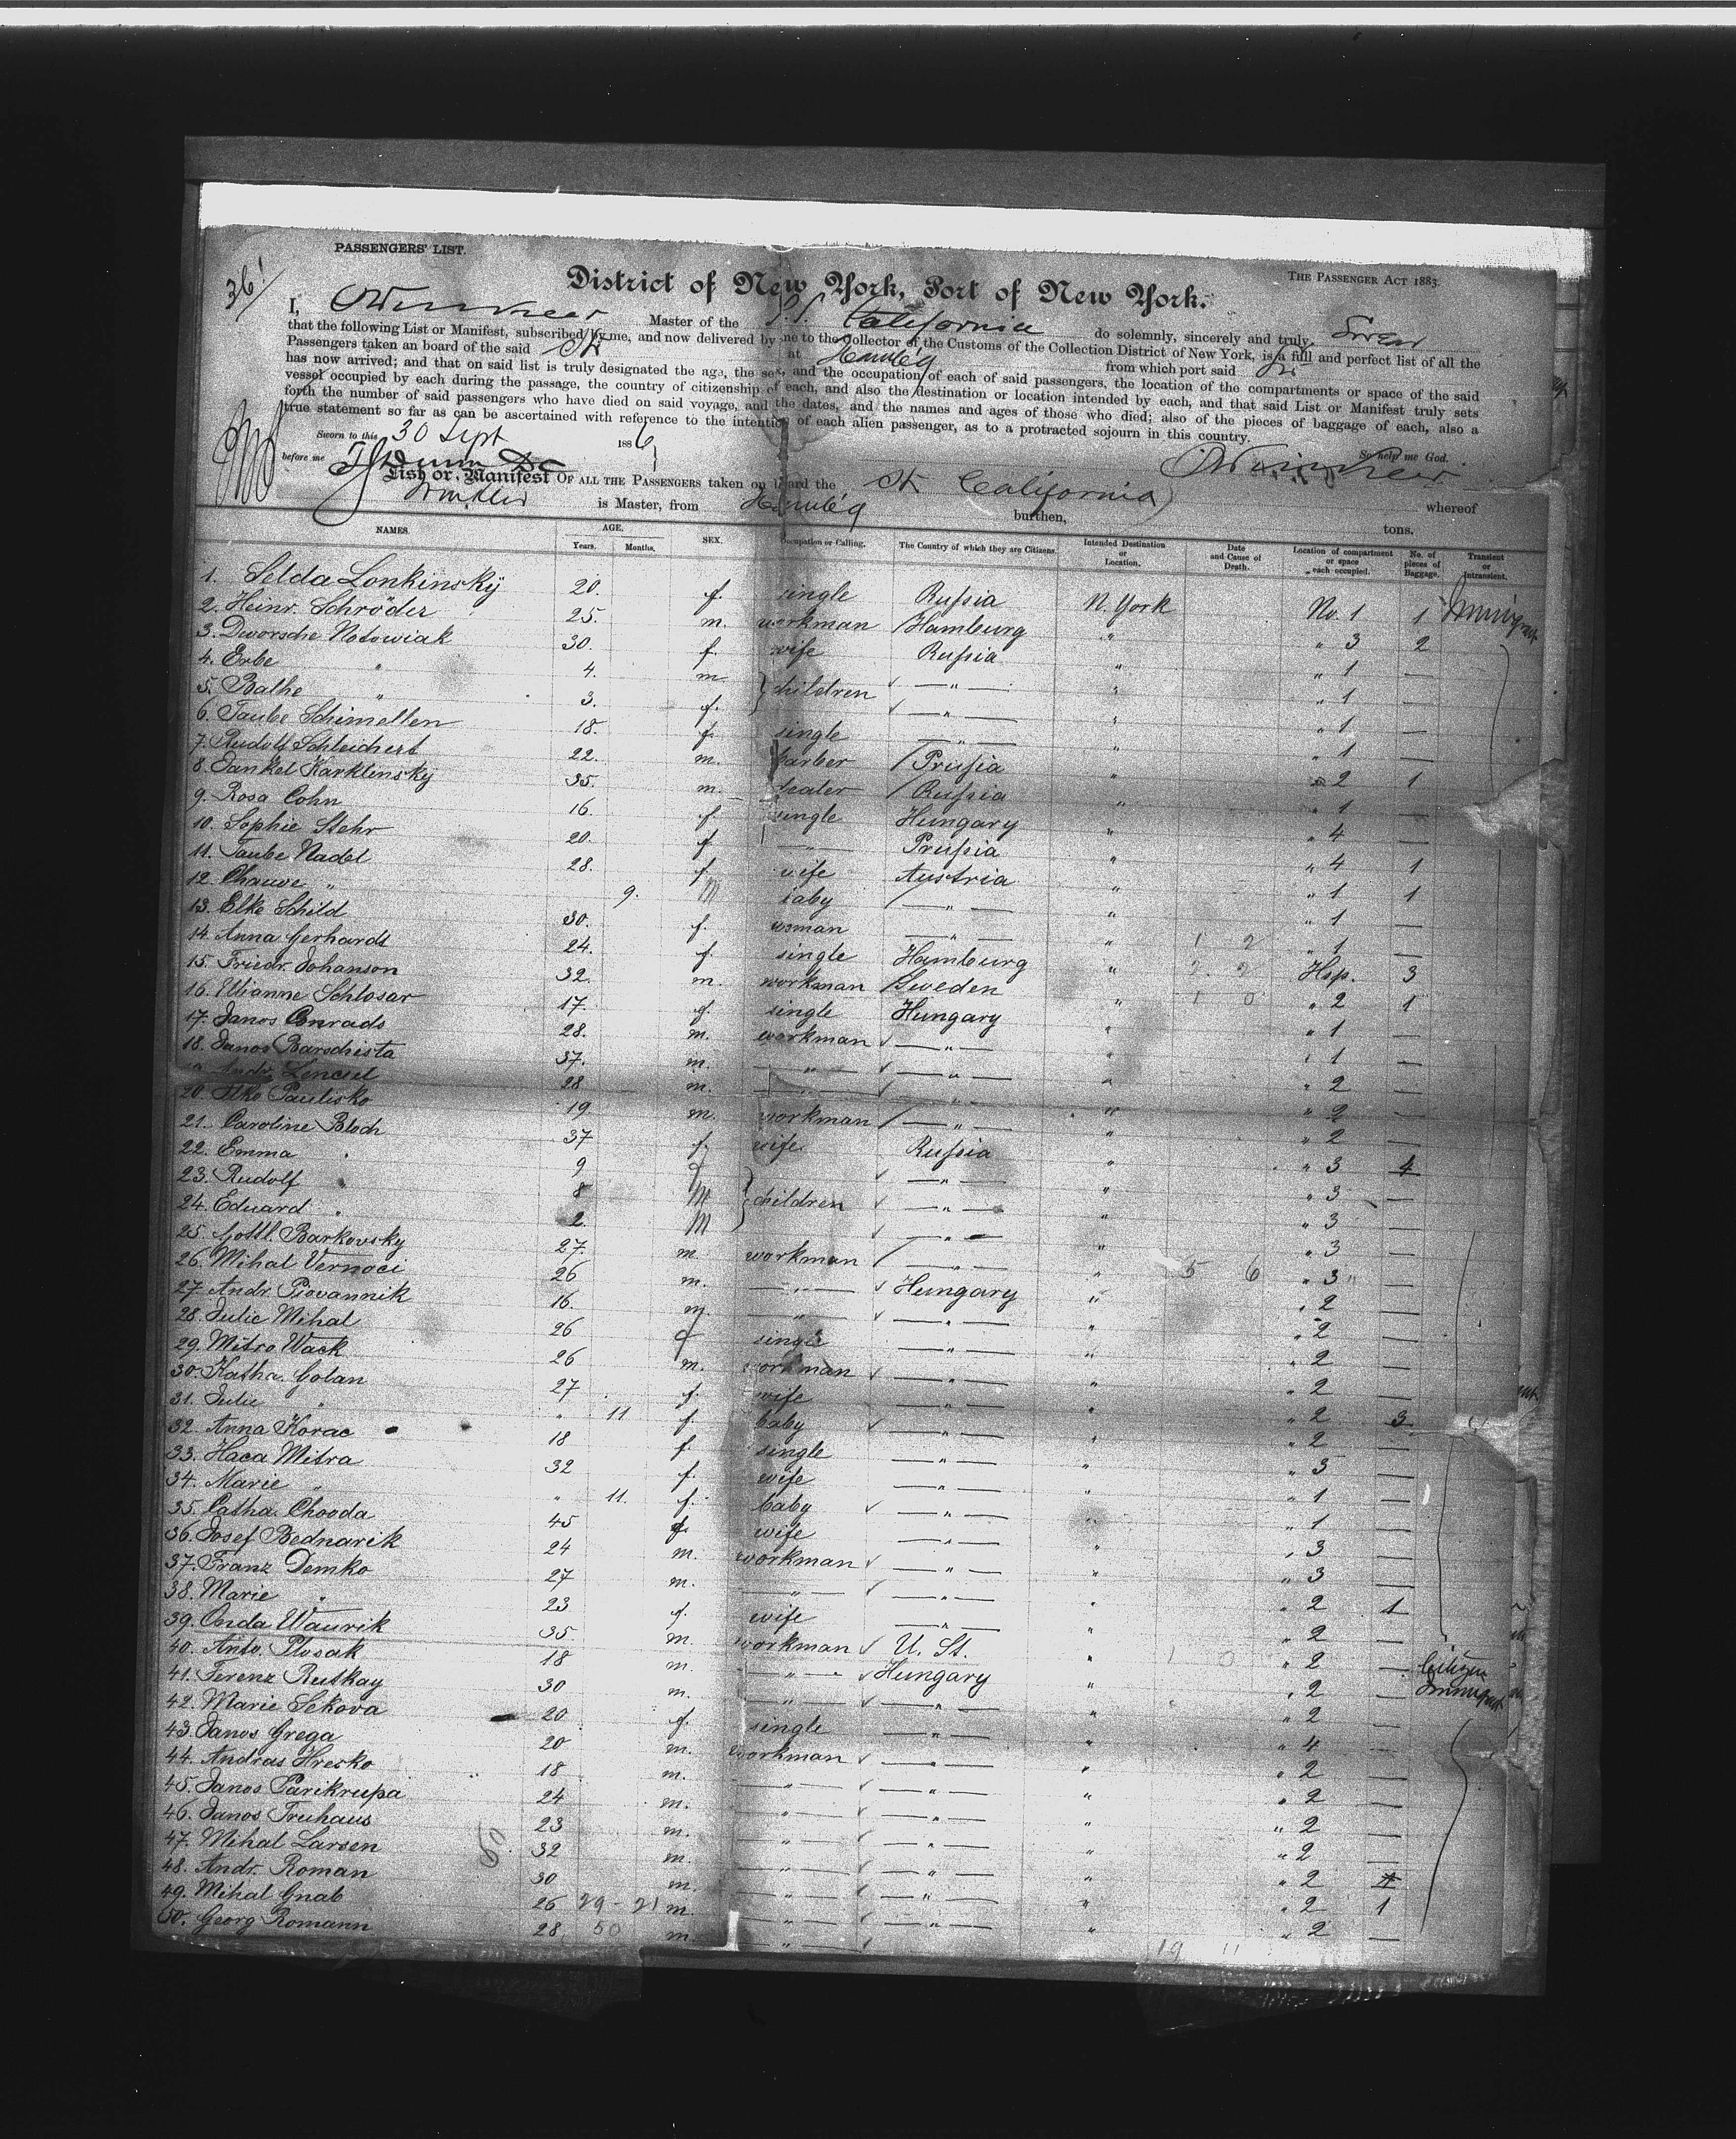 36
PASSENGERS' LIST.
THE PASSENGER ACT 1883.
District of New York, Port of New York.
I, Master of the S.S. California do solemnly, sincerely and truly, Swear
that the following List or Manifest, subscribed by me, and now delivered by me to the Collector of the Customs of the Collection District of New York, is a full and perfect list of all the
Passengers taken an board of the said at Hambg from which port said
has now arrived; and that on said list is truly designated the age, the sex, and the occupation of each of said passengers, the location of the compartments or space of the said
vessel occupied by each during the passage, the country of citizenship of each, and also the destination or location intended by each, and that said List or Manifest truly sets
forth the number of said passengers who have died on said voyage, and the dates, and the names and ages of those who died; also of the pieces of baggage of each, also a
true statement so far as can be ascertained with reference to the intention of each alien passenger, as to a protracted sojourn in this country.
Sworn to this 30 Sept 1886
before me So help me God.
List or Manifest OF ALL THE PASSENGERS taken on board the St California whereof
is Master, from Hambg burthen, tons.
NAMES. AGE. Years. Months. SEX. Occupation or Calling. The Country of which they are Citizens. Intended Destination or Location. Date and Cause of Death. Location of compartment or space each occupied. No. of pieces of Baggage. Transient or Intransient.
1. Selda Lonkinsky 20. f. single Russia N. York No. 1 1 Immigrant
2. Heinr. Schröder 25. m. workman Hamburg " " 3 2
3. Dworsche Notowiak 30. f. wife Russia " " 1 —
4. Erbe " 4. m. children — " — " " 1 —
5. Bathe " 3. f. — " — " " 1 —
6. Taube Schimellen 18. f. single — " — " " 1 —
7. Rudolf Schleichert 22. m. barber Prussia " " 2 1
8. Jankel Karklinsky 35. m. dealer Russia " " 1 —
9. Rosa Cohn 16. f. single Hungary " " 4 —
10. Sophie Stehr 20. f — " — Prussia " " 4 1
11. Taube Nadel 28. f. wife Austria " " 1 1
12. Chauve " 9. M baby — " — " " 1 —
13. Elke Schild 30. f. woman — " — " " 1 —
14. Anna Gerhards 24. f. single Hamburg " Hsp. 3
15. Friedr. Johanson 32. m. workman Sweden " " 2 1
16. Ulianne Schlosar 17. f. single Hungary " " 1 —
17. Janos Conrads 28. m. workman — " — " " 1 —
18. Janos Barschista 37. m. — " — — " — " " 2 —
Andr. Lencsel 28 m. — " — — " — " " 2 —
20. Ilko Paulisko 19 m. workman — " — " " 2 —
21. Caroline Bloch 37 f. wife Russia " " 3 4
22. Emma " 9 f children — " — " " 3 —
23. Rudolf " 8 M — " — " " 3 —
24. Eduard " 2. M — " — " " 3 —
25. Gottl. Barkovsky 27. m. workman — " — " " 3 —
26. Mihal Vernoci 26 m. — " — Hungary " " 2 —
27. Andr. Piovannik 16. m. — " — — " — " " 2 —
28. Julie Mihal 26 f single — " — " " 2 —
29. Mitro Wack 26 m. workman — " — " " 2 —
30. Katha. Golan 27 f. wife — " — " " 2 3
31. Julie " " 11 f. baby — " — " " 2 —
32. Anna Korac 18 f. single — " — " " 3 —
33. Haca Mitra 32 f. wife — " — " " 1 —
34. Marie " " 11. f. baby — " — " " 1 —
35. Catha. Chooda 45 f. wife — " — " " 3 —
36. Josef Bednarik 24 m. workman — " — " " 3 —
37. Franz Demko 27 m. — " — — " — " " 2 1
38. Marie " 23 f. wife — " — " " 2 —
39. Onda Waurik 35 m. workman U. St. " " 2 — Citizen
40. Anto. Plosak 18 m. — " — Hungary " " 2 — Immigrant
41. Ferenz Rutkay 30 m. — " — — " — " " 2 —
42. Marie Sekova 20 f. single — " — " " 4 —
43. Janos Grega 20 m. workman — " — " " 2 —
44. Andras Hrecko 18 m. — " — — " — " " 2 —
45. Janos Parikrupa 24 m. — " — — " — " " 2 —
46. Janos Truhaus 23 m. — " — — " — " " 2 —
47. Mihal Larsen 32 m. — " — — " — " " 2 1
48. Andr. Roman 30 m. — " — — " — " " 2 1
49. Mihal Gnab 26 29 - 21 m. — " — — " — " " 2 —
50. Georg Romann 28 50 m. — " —
19 11